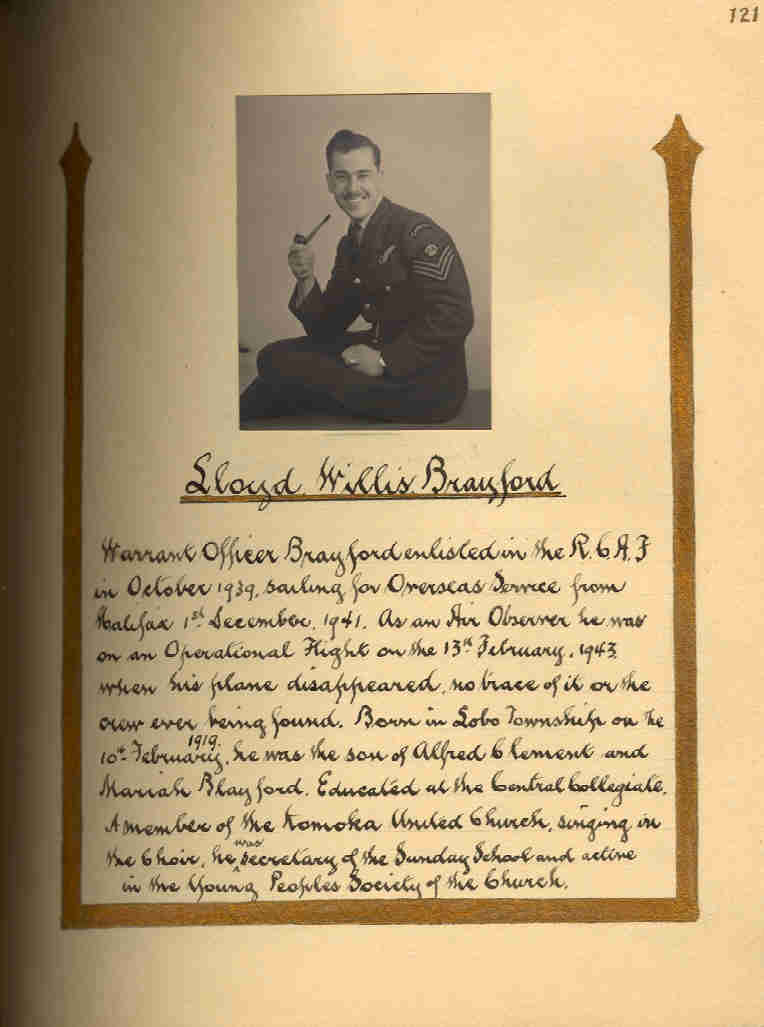 121
Lloyd Willis Brayford
Warrant Officer Brayford enlisted in the R.C.A.F
in October 1939, sailing for Overseas Service from
Halifax 1st December, 1941. As an Air Observer he was
on an Operational Flight on the 13th February, 1943,
when his plane disappeared, no trace of it or the
crew ever being found. Born in Lobo Township on the
10th February, 1919, he was the son of Alfred Clement and
Mariah Blayford. Educated at the Central Collegiate.
A member of the Komoka United Church, singing in
the Choir, he was secretary of the Sunday School and active
in the Young Peoples Society of the Church.